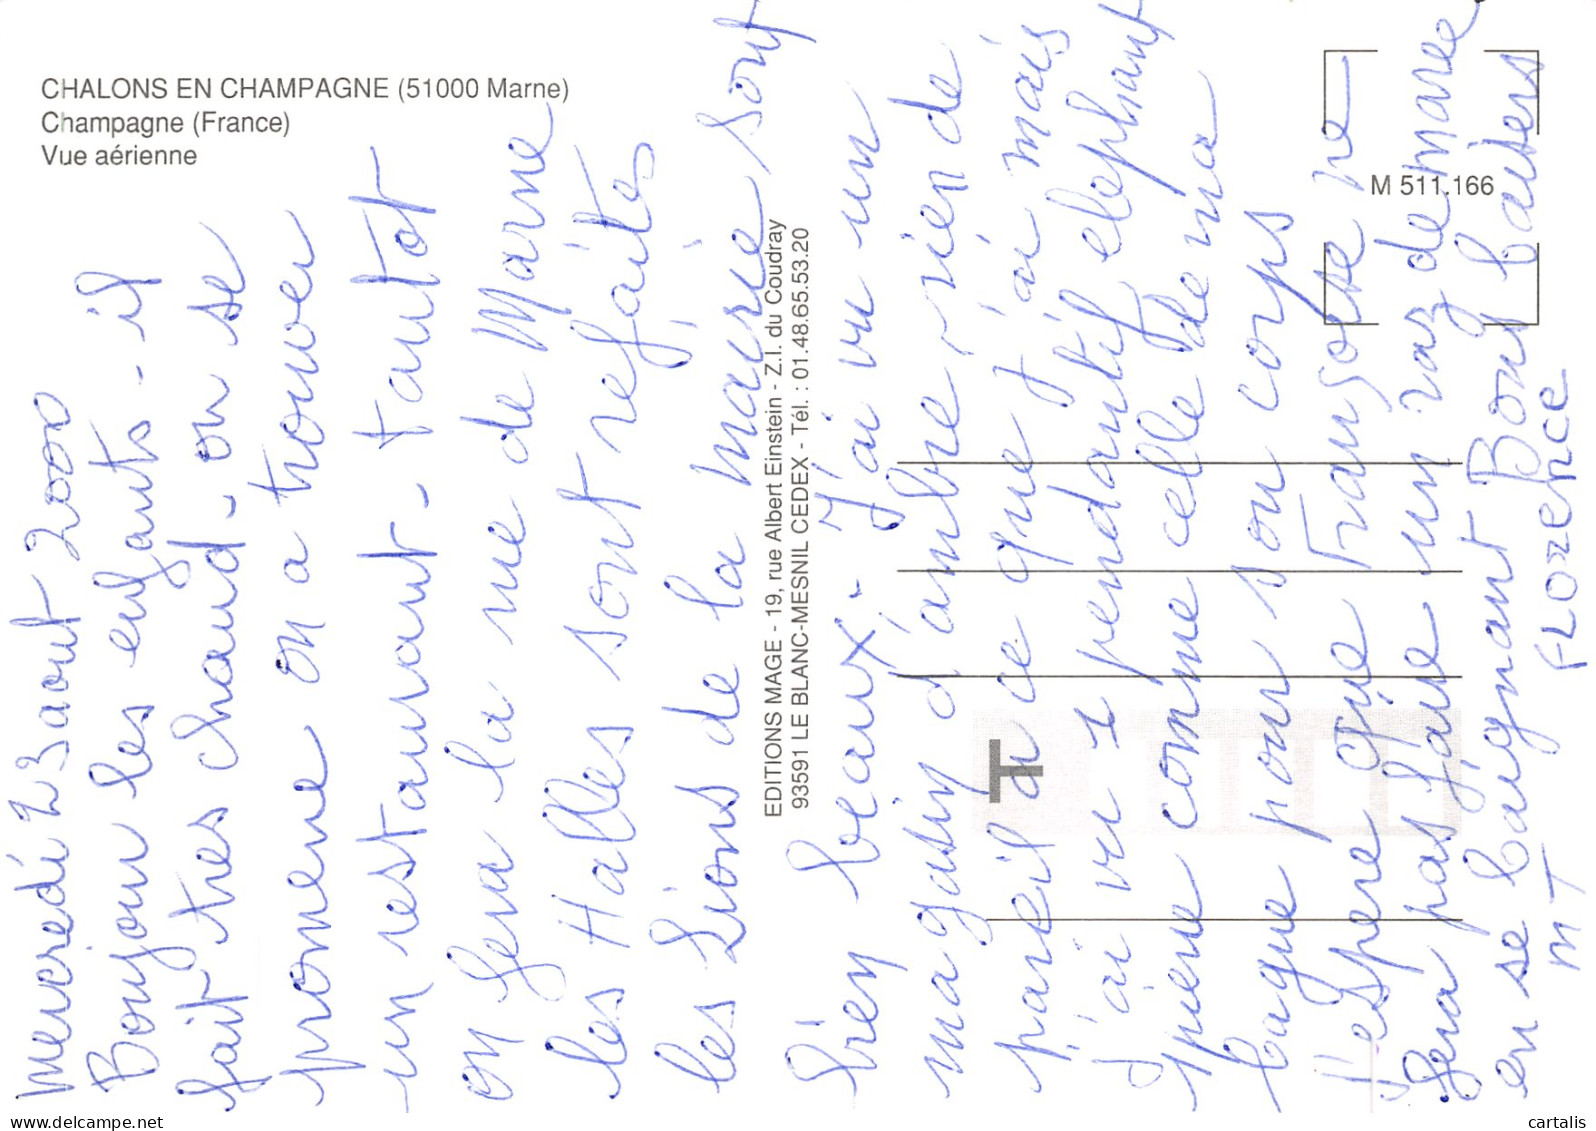 CHALONS EN CHAMPAGNE (51000 Marne)
Champagne (France)
Vue aérienne
M 511.166
EDITIONS MAGE - 19, rue Albert Einstein - Z.I. du Coudray
93591 LE BLANC-MESNIL CEDEX - Tél. : 01.48.65.53.20
T
mercredi 23 aout 2000
Bonjour les enfants - il
fait tres chaud - on se
promene on a trouver
un restaurant - tantot
on fera la rue de Marne
les Halles sont refaites
les Lions de la mairie sont
bien beaux - J'ai vu un
magasin d'ambre rien de
pareil a ce que j'ai mais
j'ai vu 1 pendantif elephant
pierre comme celle de ma
bague pour son corps
J'espere que Françoise ne
fera pas faire un raz de maree
en se baignant Bons baisers
MT FLORENCE
cartalis